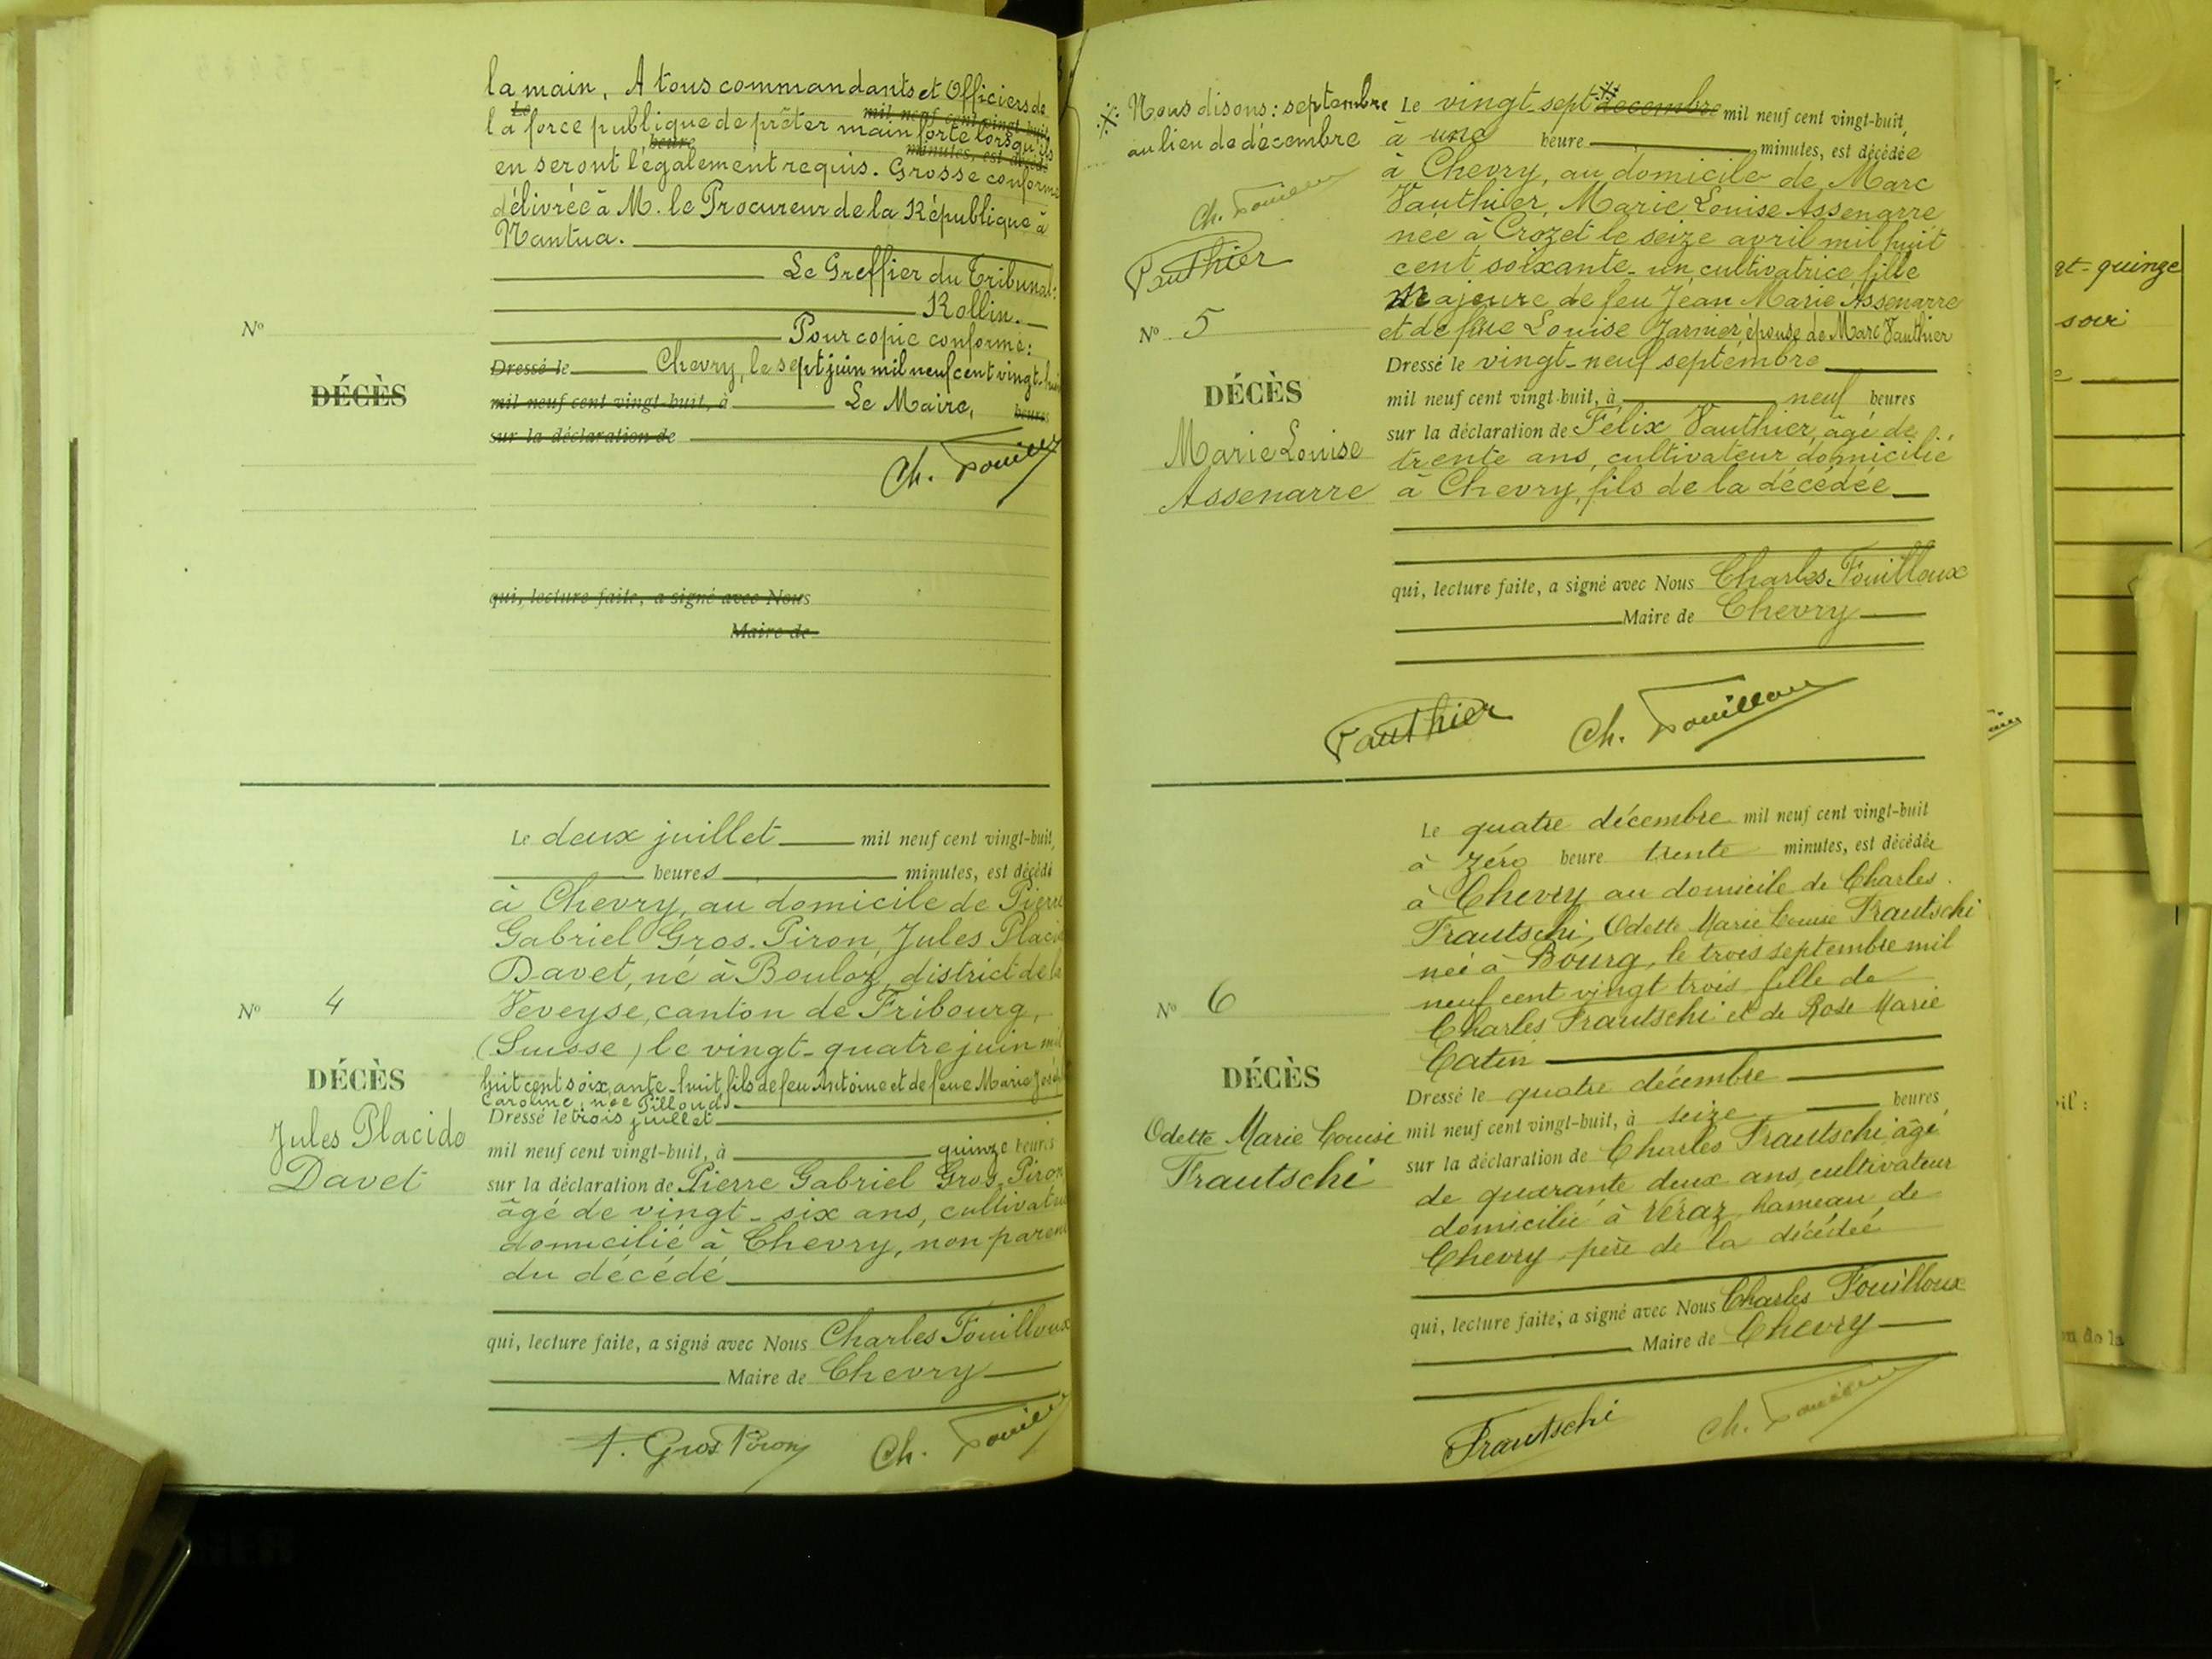 la main. A tous commandants et Officiers de
Le mil neuf cent vingt-huit
la force publique de prêter main forte lorsqu'ils
heure minutes, est décédé
en seront légalement requis. Grosse conforme
délivrée à M. le Procureur de la République à
Nantua.
Le Greffier du Tribunal:
Rollin.
Nº
Pour copie conforme:
Dressé le Chevry, le sept juin mil neuf cent vingt-huit
DÉCÈS
mil neuf cent vingt-huit, à Le Maire, heures
sur la déclaration de
Ch. Fouilloux
qui, lecture faite, a signé avec Nous
Maire de
Le deux juillet mil neuf cent vingt-huit,
heures minutes, est décédé
à Chevry, au domicile de Pierre
Gabriel Gros-Piron, Jules Placide
Davet, né à Bouloz, district de la
Nº 4
Veveyse, canton de Fribourg,
(Suisse) le vingt-quatre juin mil
DÉCÈS
huit cent soixante-huit, fils de feu Antoine et de feue Marie
Caroline, née Pilloud
Dressé le trois juillet
Jules Placide
Davet
mil neuf cent vingt-huit, à quinze heures
sur la déclaration de Pierre Gabriel Gros-Piron
âgé de vingt-six ans, cultivateur
domicilié à Chevry, non parent
du décédé
qui, lecture faite, a signé avec Nous Charles Fouilloux
Maire de Chevry
Gros Piron Ch. Fouilloux
Nous disons: septembre
au lieu de décembre
Ch. Fouilloux
Vauthier
Le vingt-sept decembre mil neuf cent vingt-huit
à une heure minutes, est décédée
à Chevry, au domicile de Marc
Vauthier, Marie Louise Assenarre
née à Crozet le seize avril mil huit
cent soixante-un cultivatrice fille
Majeure de feu Jean Marie Assenarre
Nº 5
et de feue Louise Jarnier épouse de Marc Vauthier
Dressé le vingt-neuf septembre
DÉCÈS
Marie Louise
Assenarre
mil neuf cent vingt-huit, à neuf heures
sur la déclaration de Félix Vauthier, âgé de
trente ans, cultivateur domicilié
à Chevry, fils de la décédée
qui, lecture faite, a signé avec Nous Charles Fouilloux
Maire de Chevry
Vauthier Ch. Fouilloux
Le quatre décembre mil neuf cent vingt-huit
à zéro heure trente minutes, est décédée
à Chevry au domicile de Charles
Frautschi, Odette Marie Louise Frautschi
née à Bourg, le trois septembre mil
neuf cent vingt trois fille de
Nº 6
Charles Frautschi et de Rose Marie
Catin
DÉCÈS
Odette Marie Louise
Frautschi
Dressé le quatre décembre
mil neuf cent vingt-huit, à seize heures
sur la déclaration de Charles Frautschi âgé
de quarante deux ans, cultivateur
domicilié à Véraz hameau de
Chevry père de la décédée
qui, lecture faite, a signé avec Nous Charles Fouilloux
Maire de Chevry
Frautschi Ch. Fouilloux
gt-quinze
soir